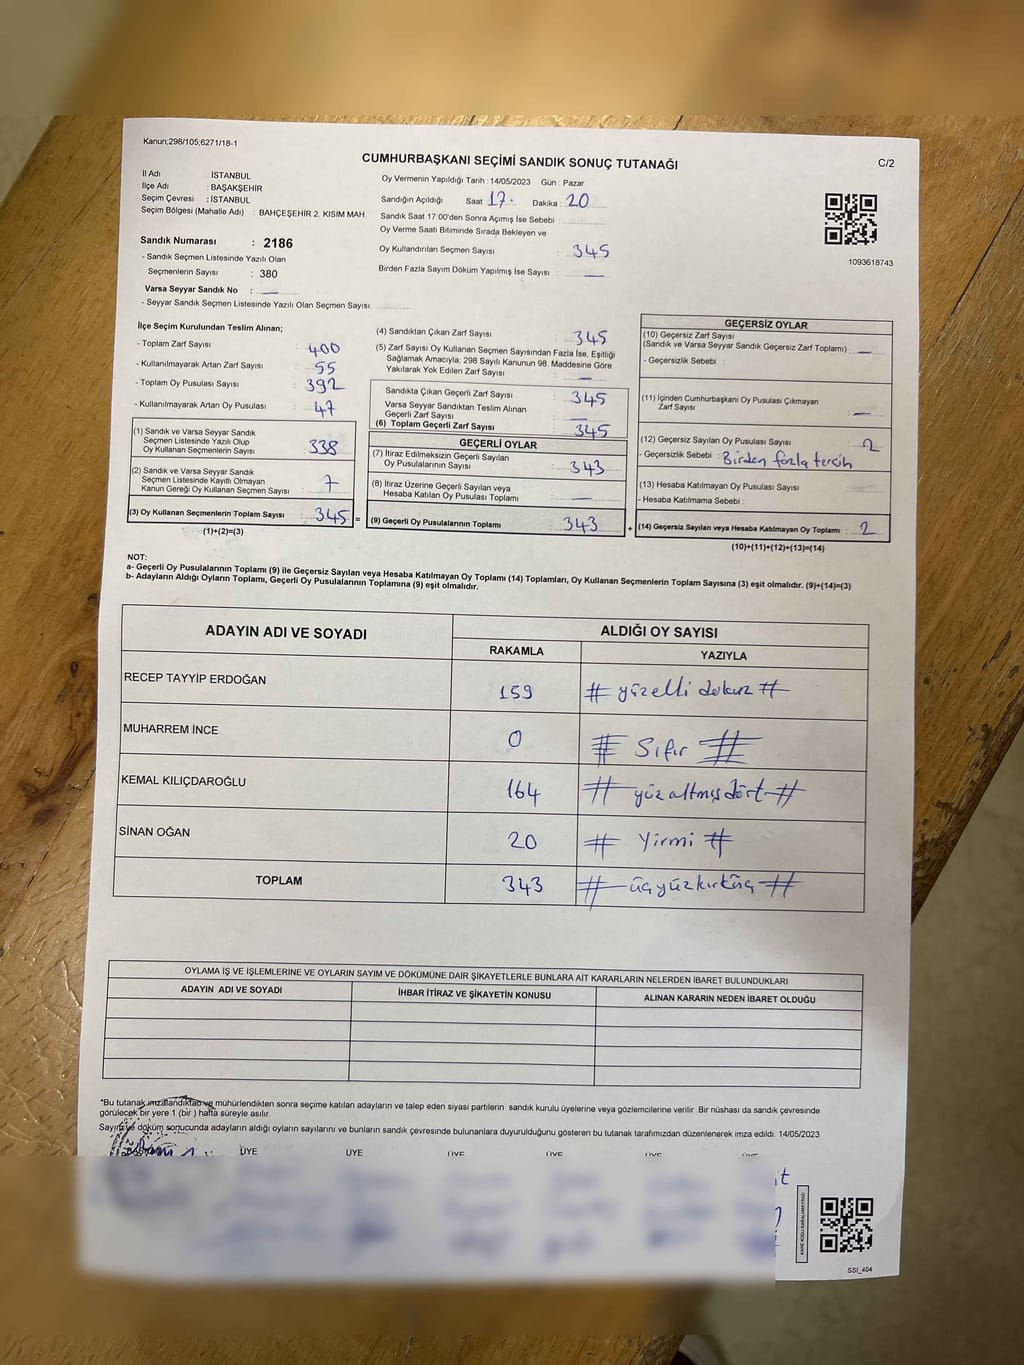 Kanun;298/105;6271/18-1
CUMHURBAŞKANI SEÇİMİ SANDIK SONUÇ TUTANAĞI
C/2
İl Adı : İSTANBUL
İlçe Adı : BAŞAKŞEHİR
Seçim Çevresi : İSTANBUL
Seçim Bölgesi (Mahalle Adı) : BAHÇEŞEHİR 2. KISIM MAH.
Sandık Numarası : 2186
- Sandık Seçmen Listesinde Yazılı Olan
Seçmenlerin Sayısı : 380
Varsa Seyyar Sandık No : —
- Seyyar Sandık Seçmen Listesinde Yazılı Olan Seçmen Sayısı:
Oy Vermenin Yapıldığı Tarih : 14/05/2023 Gün : Pazar
Sandığın Açıldığı Saat 17. Dakika : 20
Sandık Saat 17.00'den Sonra Açımış İse Sebebi :
Oy Verme Saati Bitiminde Sırada Bekleyen ve
Oy Kullandırılan Seçmen Sayısı : 345
Birden Fazla Sayım Döküm Yapılmış İse Sayısı : —
1093618743
İlçe Seçim Kurulundan Teslim Alınan;
- Toplam Zarf Sayısı : 400
- Kullanılmayarak Artan Zarf Sayısı : 55
- Toplam Oy Pusulası Sayısı : 392
- Kullanılmayarak Artan Oy Pusulası : 47
(1) Sandık ve Varsa Seyyar Sandık
Seçmen Listesinde Yazılı Olup
Oy Kullanan Seçmenlerin Sayısı : 338
(2) Sandık ve Varsa Seyyar Sandık
Seçmen Listesinde Kayıtlı Olmayan
Kanun Gereği Oy Kullanan Seçmen Sayısı : 7
(3) Oy Kullanan Seçmenlerin Toplam Sayısı : 345 =
(1)+(2)=(3)
(4) Sandıktan Çıkan Zarf Sayısı : 345
(5) Zarf Sayısı Oy Kullanan Seçmen Sayısından Fazla İse, Eşitliği
Sağlamak Amacıyla, 298 Sayılı Kanunun 98. Maddesine Göre
Yakılarak Yok Edilen Zarf Sayısı : —
Sandıkta Çıkan Geçerli Zarf Sayısı : 345
Varsa Seyyar Sandıktan Teslim Alınan
Geçerli Zarf Sayısı : —
(6) Toplam Geçerli Zarf Sayısı : 345
GEÇERLİ OYLAR
(7) İtiraz Edilmeksizin Geçerli Sayılan
Oy Pusulalarının Sayısı : 343
(8) İtiraz Üzerine Geçerli Sayılan veya
Hesaba Katılan Oy Pusulası Toplamı : —
(9) Geçerli Oy Pusulalarının Toplamı : 343 +
GEÇERSİZ OYLAR
(10) Geçersiz Zarf Sayısı
(Sandık ve Varsa Seyyar Sandık Geçersiz Zarf Toplamı) : —
- Geçersizlik Sebebi :
(11) İçinden Cumhurbaşkanı Oy Pusulası Çıkmayan
Zarf Sayısı : —
(12) Geçersiz Sayılan Oy Pusulası Sayısı : 2
- Geçersizlik Sebebi : Birden fazla tercih
(13) Hesaba Katılmayan Oy Pusulası Sayısı : —
- Hesaba Katılmama Sebebi :
(14) Geçersiz Sayılan veya Hesaba Katılmayan Oy Toplamı : 2
(10)+(11)+(12)+(13)=(14)
NOT:
a- Geçerli Oy Pusulalarının Toplamı (9) ile Geçersiz Sayılan veya Hesaba Katılmayan Oy Toplamı (14) Toplamları, Oy Kullanan Seçmenlerin Toplam Sayısına (3) eşit olmalıdır. (9)+(14)=(3)
b- Adayların Aldığı Oyların Toplamı, Geçerli Oy Pusulalarının Toplamına (9) eşit olmalıdır.
ADAYIN ADI VE SOYADI ALDIĞI OY SAYISI
RAKAMLA YAZIYLA
RECEP TAYYİP ERDOĞAN 159 # yüzelli dokuz #
MUHARREM İNCE 0 # Sıfır #
KEMAL KILIÇDAROĞLU 164 # yüz altmış dört #
SİNAN OĞAN 20 # Yirmi #
TOPLAM 343 # üçyüzkırküç #
OYLAMA İŞ VE İŞLEMLERİNE VE OYLARIN SAYIM VE DÖKÜMÜNE DAİR ŞİKAYETLERLE BUNLARA AİT KARARLARIN NELERDEN İBARET BULUNDUKLARI
ADAYIN ADI VE SOYADI İHBAR İTİRAZ VE ŞİKAYETİN KONUSU ALINAN KARARIN NEDEN İBARET OLDUĞU
*Bu tutanak imzalandıktan ve mühürlendikten sonra seçime katılan adayların ve talep eden siyasi partilerin sandık kurulu üyelerine veya gözlemcilerine verilir. Bir nüshası da sandık çevresinde
görülecek bir yere 1 (bir ) hafta süreyle asılır.
Sayım ve döküm sonucunda adayların aldığı oyların sayılarını ve bunların sandık çevresinde bulunanlara duyurulduğunu gösteren bu tutanak tarafımızdan düzenlenerek imza edildi. 14/05/2023
ÜYE ÜYE ÜYE ÜYE ÜYE ÜYE
SSI_404